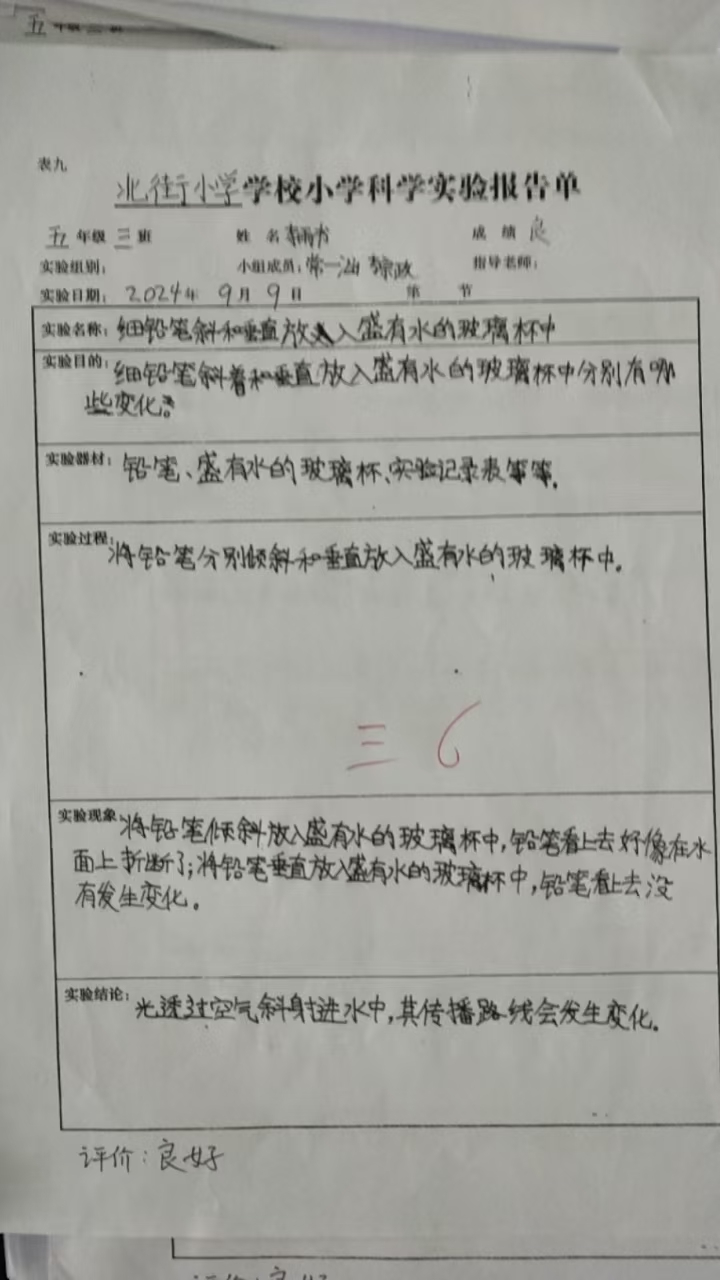 五年级三班
表九
北街小学学校小学科学实验报告单
五年级三班 姓名 成绩 良
实验组别： 小组成员：常一汕 指导老师：
实验日期：2024年9月9日 第 节
实验名称：细铅笔斜和垂直放入盛有水的玻璃杯中
实验目的：细铅笔斜着和垂直放入盛有水的玻璃杯中分别有哪
些变化。
实验器材：铅笔、盛有水的玻璃杯、实验记录表等等。
实验过程：将铅笔分别倾斜和垂直放入盛有水的玻璃杯中。
三 6
实验现象 将铅笔倾斜放入盛有水的玻璃杯中，铅笔看上去好像在水
面上折断了；将铅笔垂直放入盛有水的玻璃杯中，铅笔看上去没
有发生变化。
实验结论：光透过空气斜射进水中，其传播路线会发生变化。
评价：良好
评价：良好